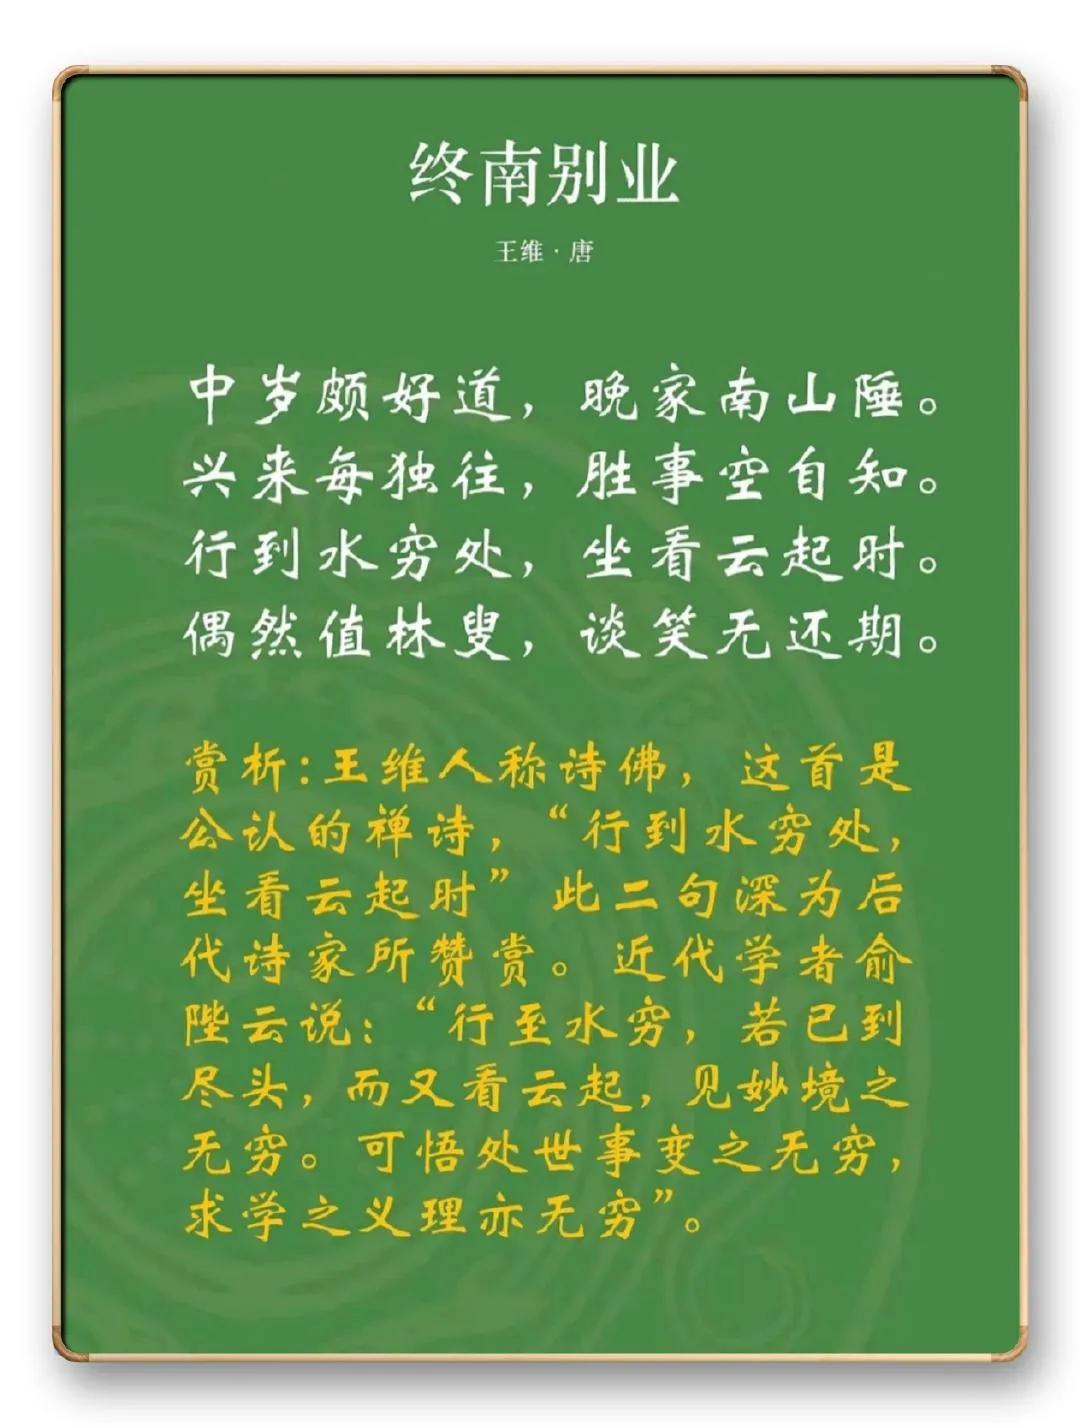 终南别业
王维·唐
中岁颇好道，晚家南山陲。
兴来每独往，胜事空自知。
行到水穷处，坐看云起时。
偶然值林叟，谈笑无还期。
赏析：王维人称诗佛，这首是
公认的禅诗，“行到水穷处，
坐看云起时”此二句深为后
代诗家所赞赏。近代学者俞
陛云说：“行至水穷，若已到
尽头，而又看云起，见妙境之
无穷。可悟处世事变之无穷，
求学之义理亦无穷”。